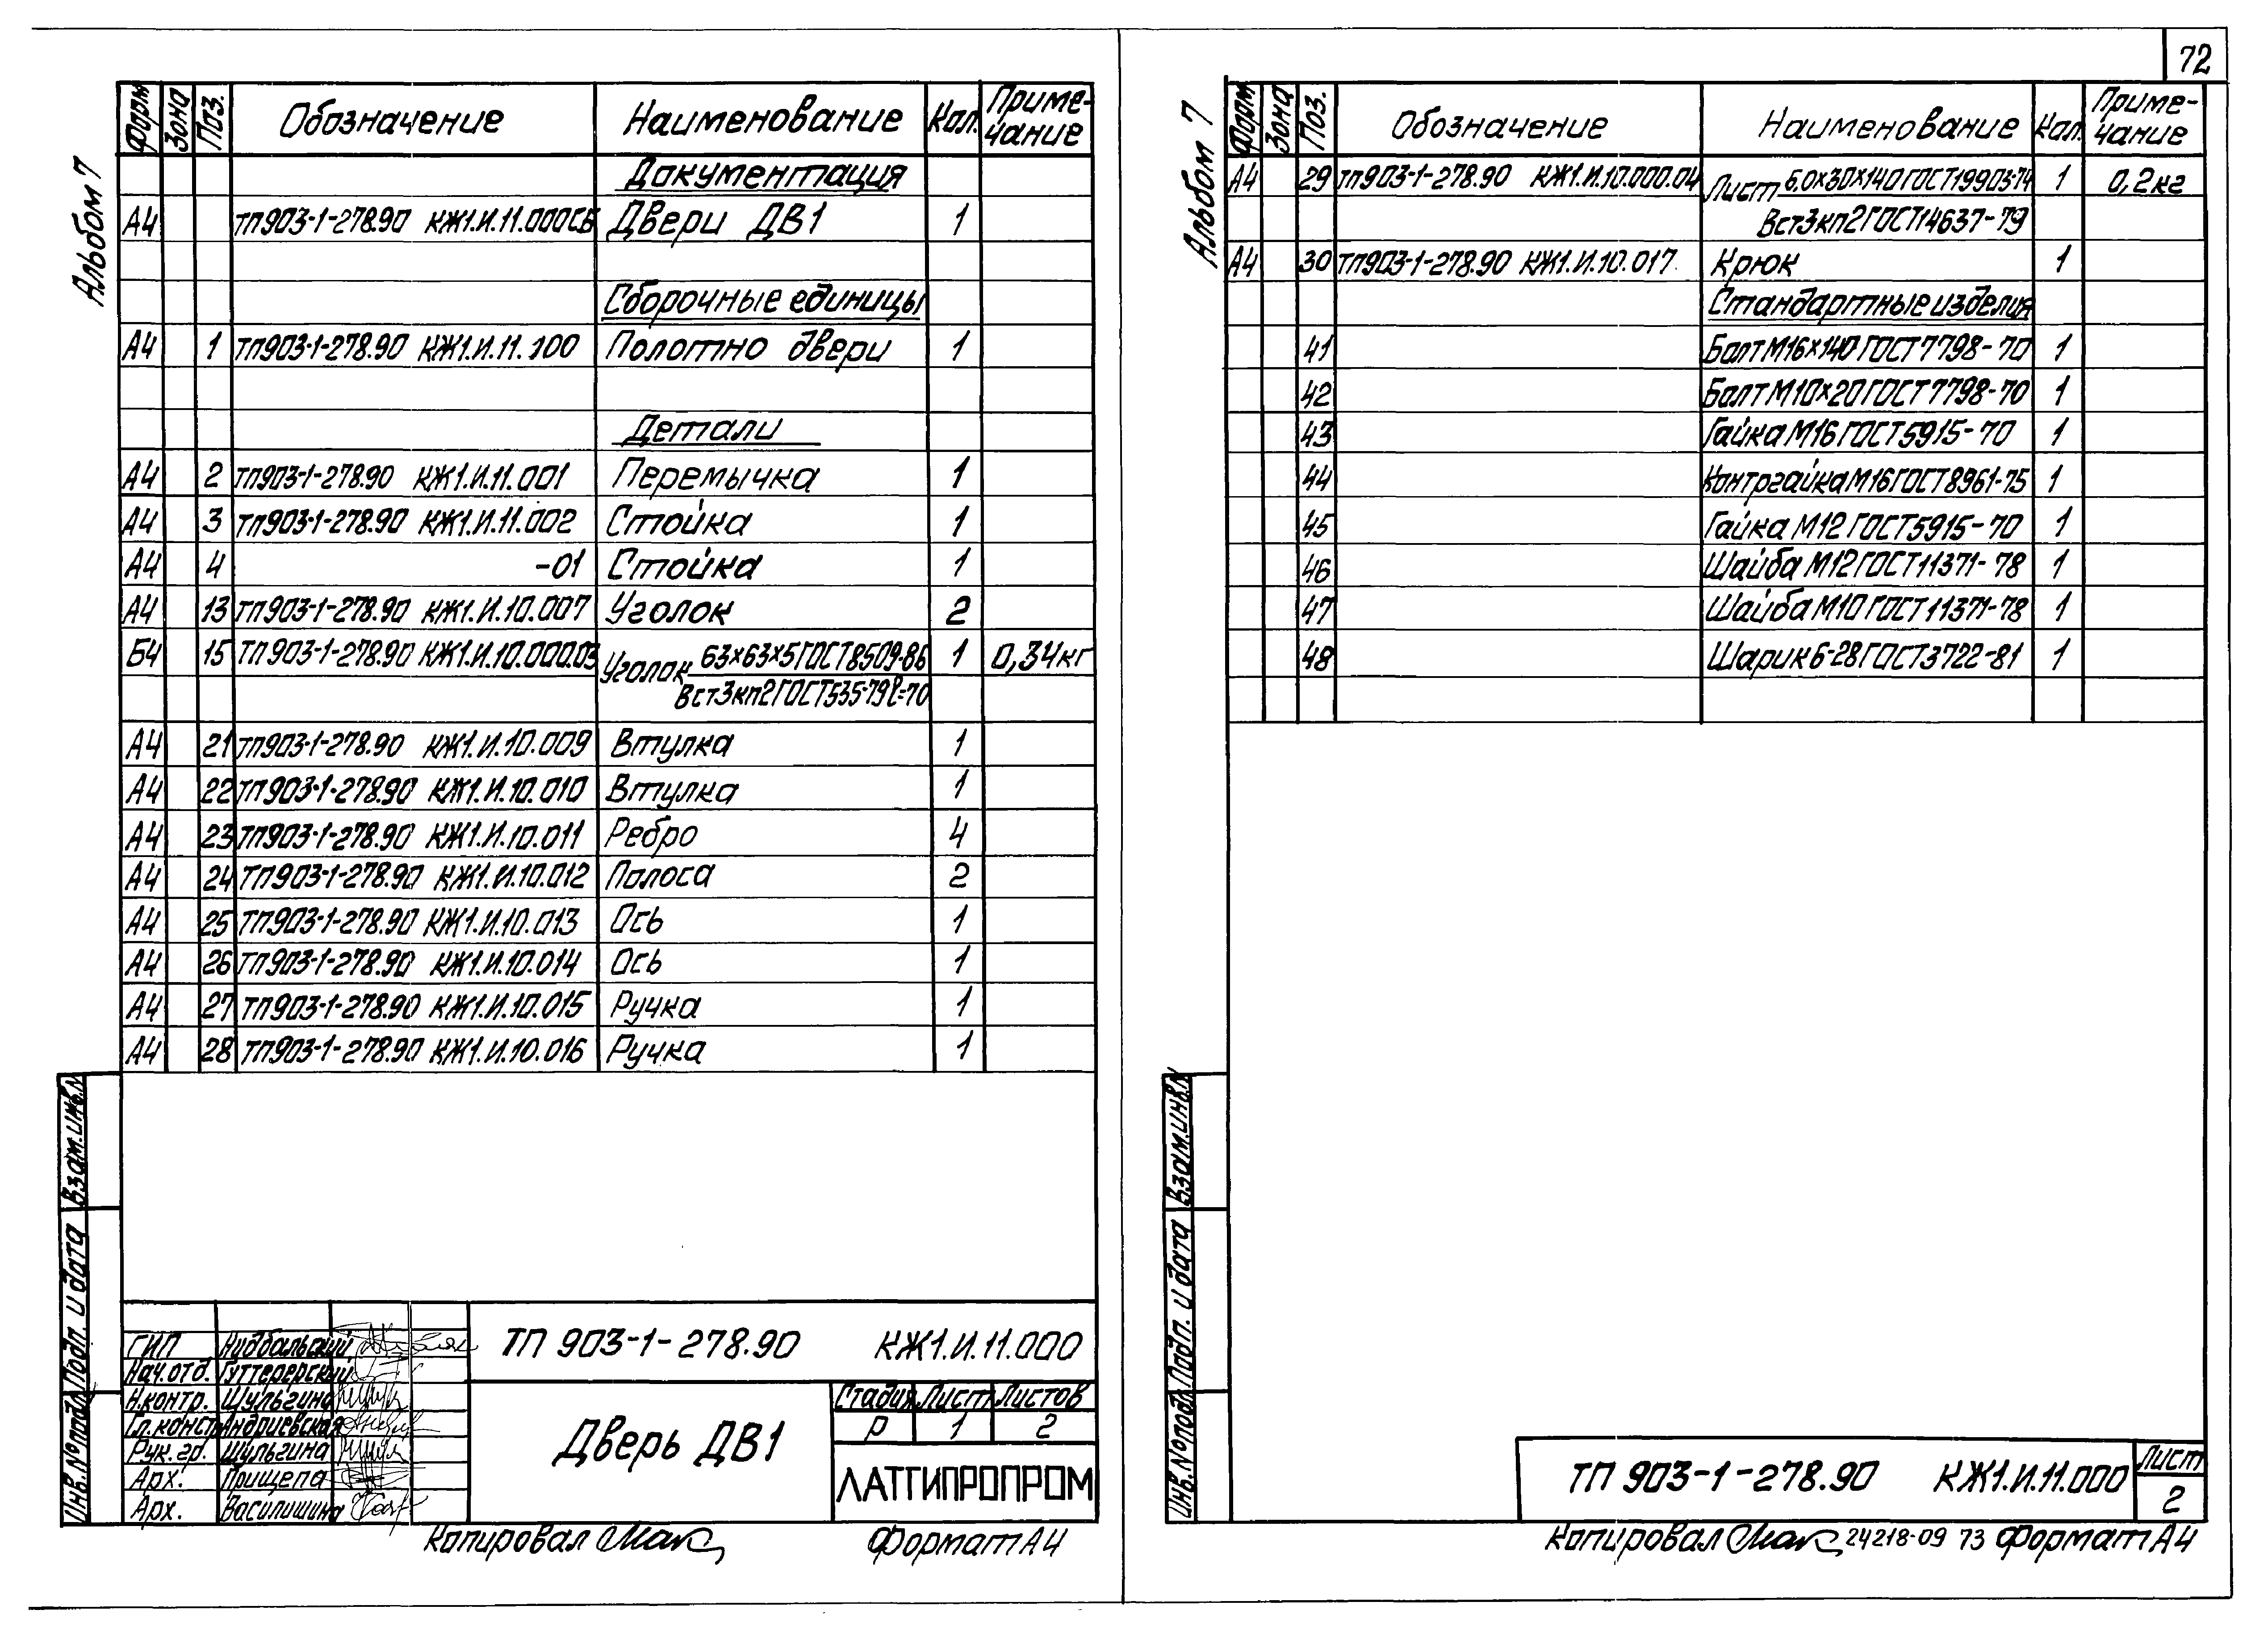 72
Альбом 7
Форм Зона Поз. Обозначение Наименование Кол. Приме-чание
Документация
А4 ТП903-1-278.90 КЖ1.И.11.000СБ Двери ДВ1 1
Сборочные единицы
А4 1 ТП903-1-278.90 КЖ1.И.11.100 Полотно двери 1
Детали
А4 2 ТП903-1-278.90 КЖ1.И.11.001 Перемычка 1
А4 3 ТП903-1-278.90 КЖ1.И.11.002 Стойка 1
А4 4 -01 Стойка 1
А4 13 ТП903-1-278.90 КЖ1.И.10.007 Уголок 2
Б4 15 ТП903-1-278.90 КЖ1.И.10.000.03 Уголок 63х63х5ГОСТ8509-86 1 0,34кг
Вст3кп2ГОСТ535-79 ℓ=70
А4 21 ТП903-1-278.90 КЖ1.И.10.009 Втулка 1
А4 22 ТП903-1-278.90 КЖ1.И.10.010 Втулка 1
А4 23 ТП903-1-278.90 КЖ1.И.10.011 Ребро 4
А4 24 ТП903-1-278.90 КЖ1.И.10.012 Полоса 2
А4 25 ТП903-1-278.90 КЖ1.И.10.013 Ось 1
А4 26 ТП903-1-278.90 КЖ1.И.10.014 Ось 1
А4 27 ТП903-1-278.90 КЖ1.И.10.015 Ручка 1
А4 28 ТП903-1-278.90 КЖ1.И.10.016 Ручка 1
Взам.инв.№
Подп. и дата
Инв.№подл.
ТП 903-1-278.90 КЖ1.И.11.000
ГИП
Нач.отд. Гуттерерский
Н.контр. Шульгина
Гл.констр. Андриевская
Рук.гр. Шульгина
Арх. Прищепа
Арх. Василишина
Дверь ДВ1
Стадия Лист Листов
Р 1 2
ЛАТГИПРОПРОМ
Копировал Формат А4
Альбом 7
Форм Зона Поз. Обозначение Наименование Кол. Приме-чание
А4 29 ТП903-1-278.90 КЖ1.И.10.000.04 Лист 6.0х30х140ГОСТ19903-74 1 0,2кг
Вст3кп2ГОСТ14637-79
А4 30 ТП903-1-278.90 КЖ1.И.10.017 Крюк 1
Стандартные изделия
41 Болт М16х140 ГОСТ7798-70 1
42 Болт М10х20 ГОСТ7798-70 1
43 Гайка М16 ГОСТ5915-70 1
44 Контргайка М16 ГОСТ8961-75 1
45 Гайка М12 ГОСТ5915-70 1
46 Шайба М12 ГОСТ11371-78 1
47 Шайба М10 ГОСТ11371-78 1
48 Шарик 6-28 ГОСТ3722-81 1
Взам.инв.№
Подп. и дата
Инв.№подл.
ТП 903-1-278.90 КЖ1.И.11.000
Лист
2
Копировал 24218-09 73 Формат А4